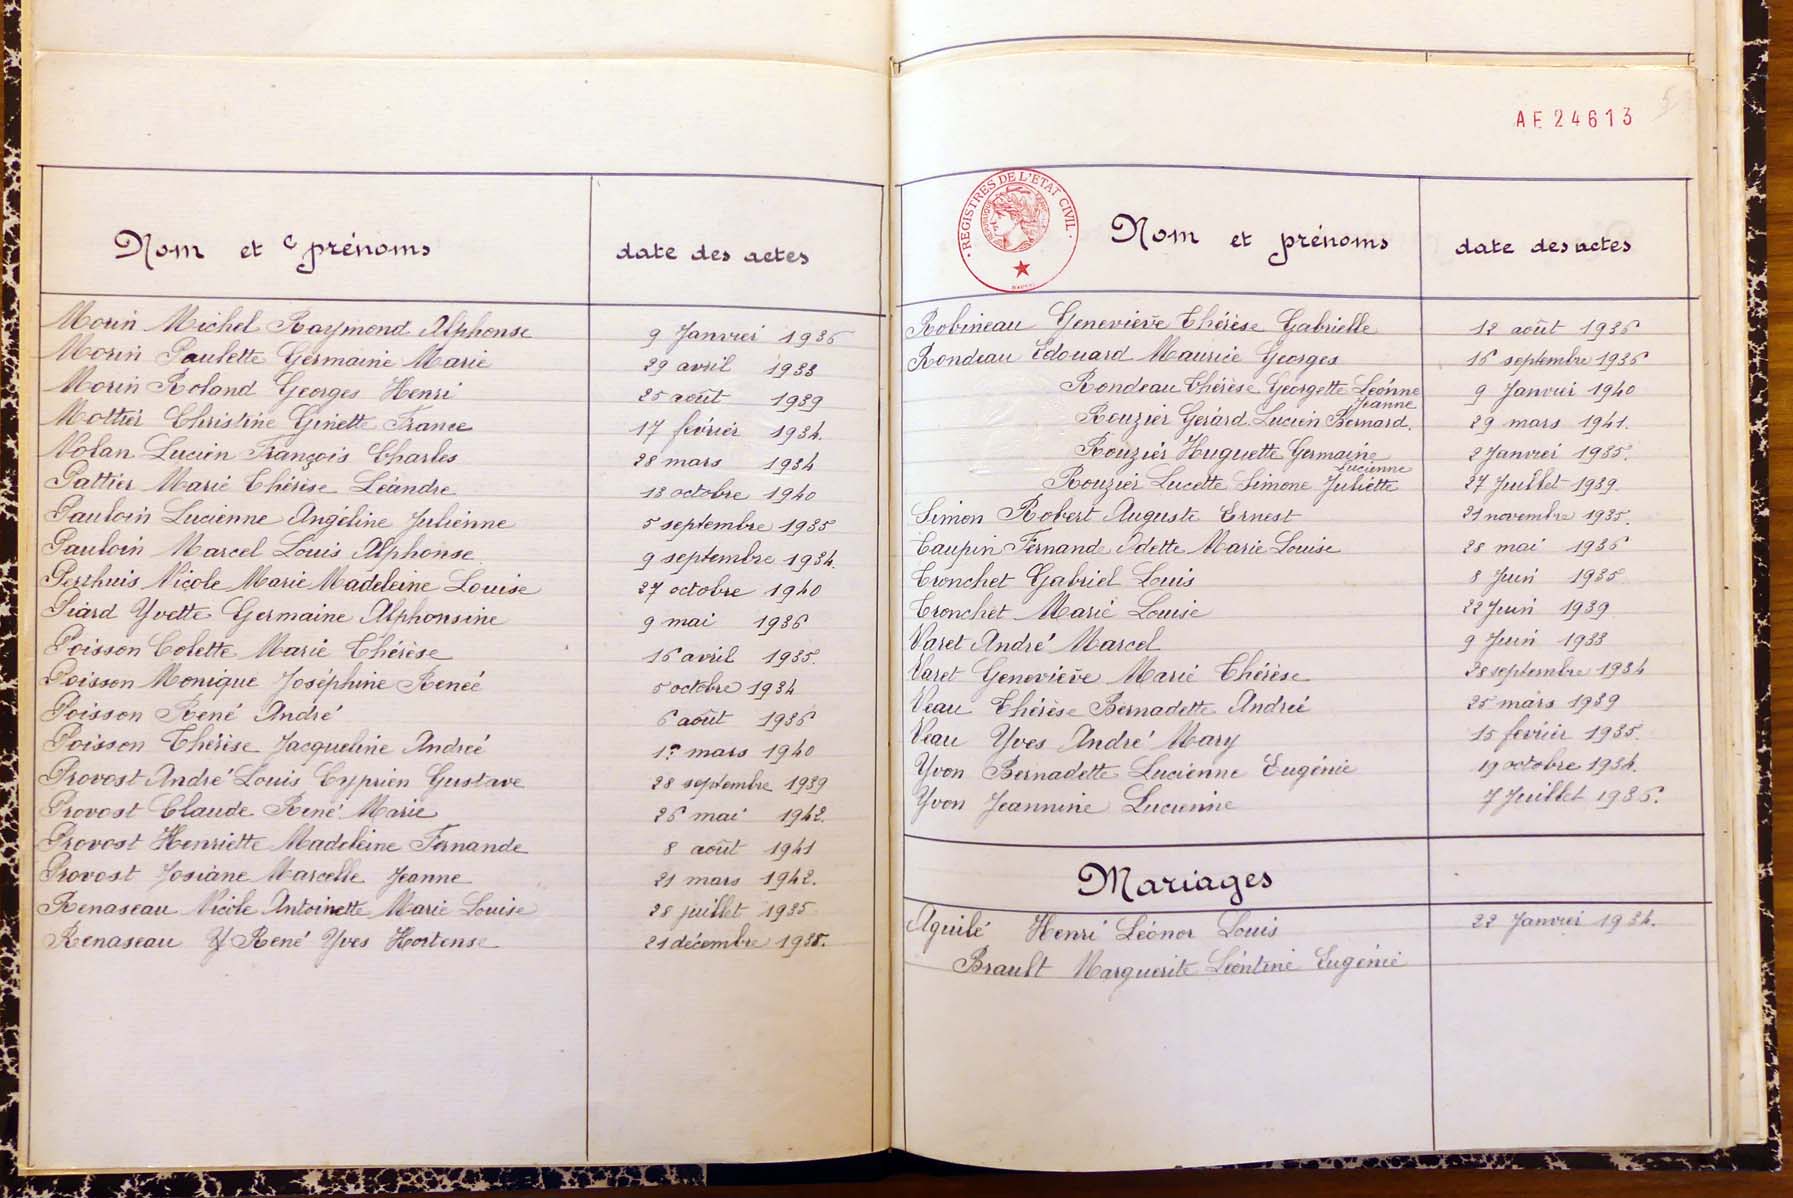 Nom et prénoms
date des actes
Morin Michel Raymond Alphonse 9 Janvier 1936
Morin Paulette Germaine Marie 29 avril 1933
Morin Roland Georges Henri 25 août 1939
Mottier Christine Ginette France 17 février 1934.
Nolan Lucien François Charles 28 mars 1934
Pattier Marie Thérèse Léandre 13 octobre 1940
Pauloin Lucienne Angéline Julienne 5 septembre 1935
Pauloin Marcel Louis Alphonse 9 septembre 1934.
Perthuis Nicole Marie Madeleine Louise 27 octobre 1940
Piard Yvette Germaine Alphonsine 9 mai 1936
Poisson Colette Marie Thérèse 16 avril 1935.
Poisson Monique Joséphine Reneé 5 octobre 1934
Poisson René André 6 août 1936
Poisson Thérèse Jacqueline Andreé 1er mars 1940
Provost André Louis Cyprien Gustave 28 septembre 1939
Provost Claude René Marie 26 mai 1942.
Provost Henriette Madeleine Fernande 8 août 1941
Provost Josiane Marcelle Jeanne 21 mars 1942.
Renaseau Nicole Antoinette Marie Louise 28 juillet 1935
Renaseau René Yves Hortense 21 décembre 1938.
AE 24613
REGISTRES DE L'ETAT CIVIL
Nom et prénoms
date des actes
Robineau Geneviève Thérèse Gabrielle 12 août 1936
Rondeau Edouard Maurice Georges 16 septembre 1936
Rondeau Thérèse Georgette Léonne 9 Janvier 1940
Jeanne
Rouzier Gerárd Lucien Bernard. 29 mars 1941.
Rouzier Huguette Germaine 2 Janvier 1935.
Lucienne
Rouzier Lucette Simone Juliette 27 Juillet 1939.
Simon Robert Auguste Ernest 21 novembre 1935.
Taupin Fernande Odette Marie Louise 28 mai 1936
Tronchet Gabriel Louis 8 Juin 1935
Tronchet Marie Louise 22 Juin 1939
Varet André Marcel 9 Juin 1933
Varet Geneviève Marie Thérèse 28 septembre 1934
Veau Thérèse Bernadette Andrée 25 mars 1939
Veau Yves André Mary 15 février 1935.
Yvon Bernadette Lucienne Eugénie 19 octobre 1934.
Yvon Jeannine Lucienne 7 Juillet 1936.
Mariages
Aguilé Henri Léonor Louis 22 Janvier 1934.
Brault Marguerite Léontine Eugénie